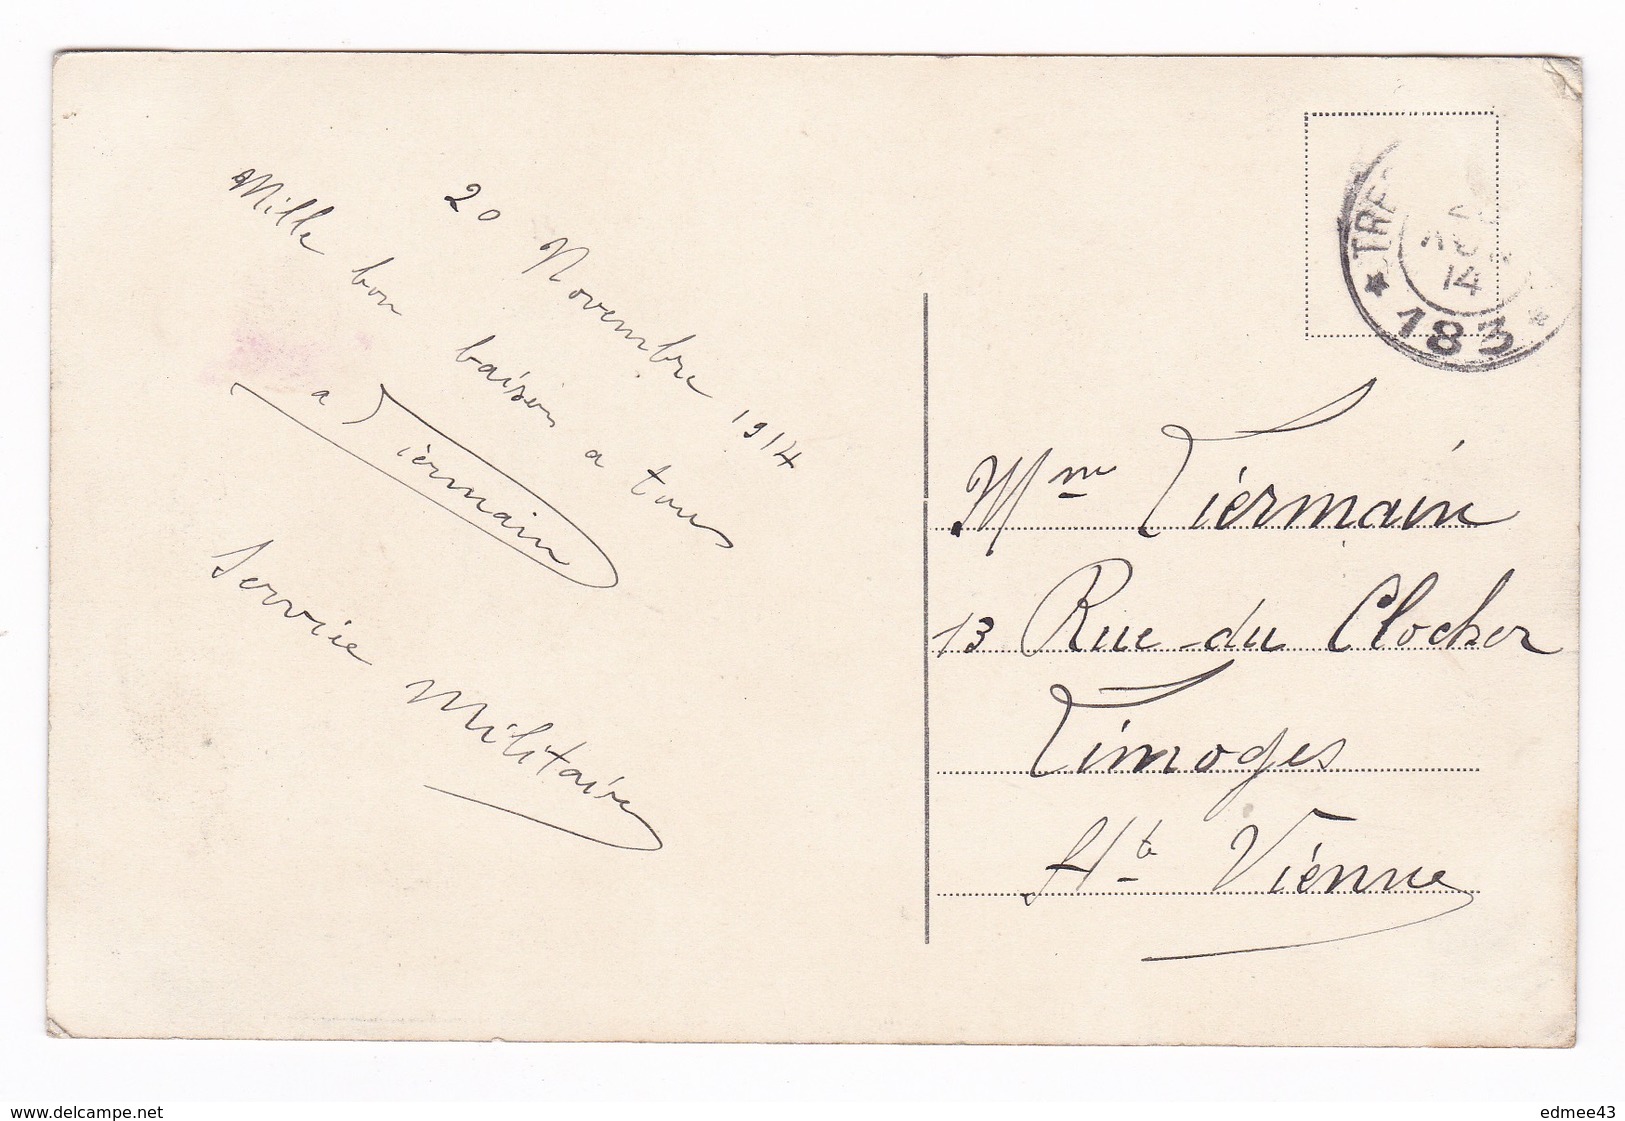 20 Novembre 1914
Mille bon baisers a tous
a Tiermain
Servie Militaire
TRE
NOV
14
* 183 *
Mme Tiermain
13 Rue du Clocher
Limoges
Hte Vienne
www.delcampe.net
edmee43